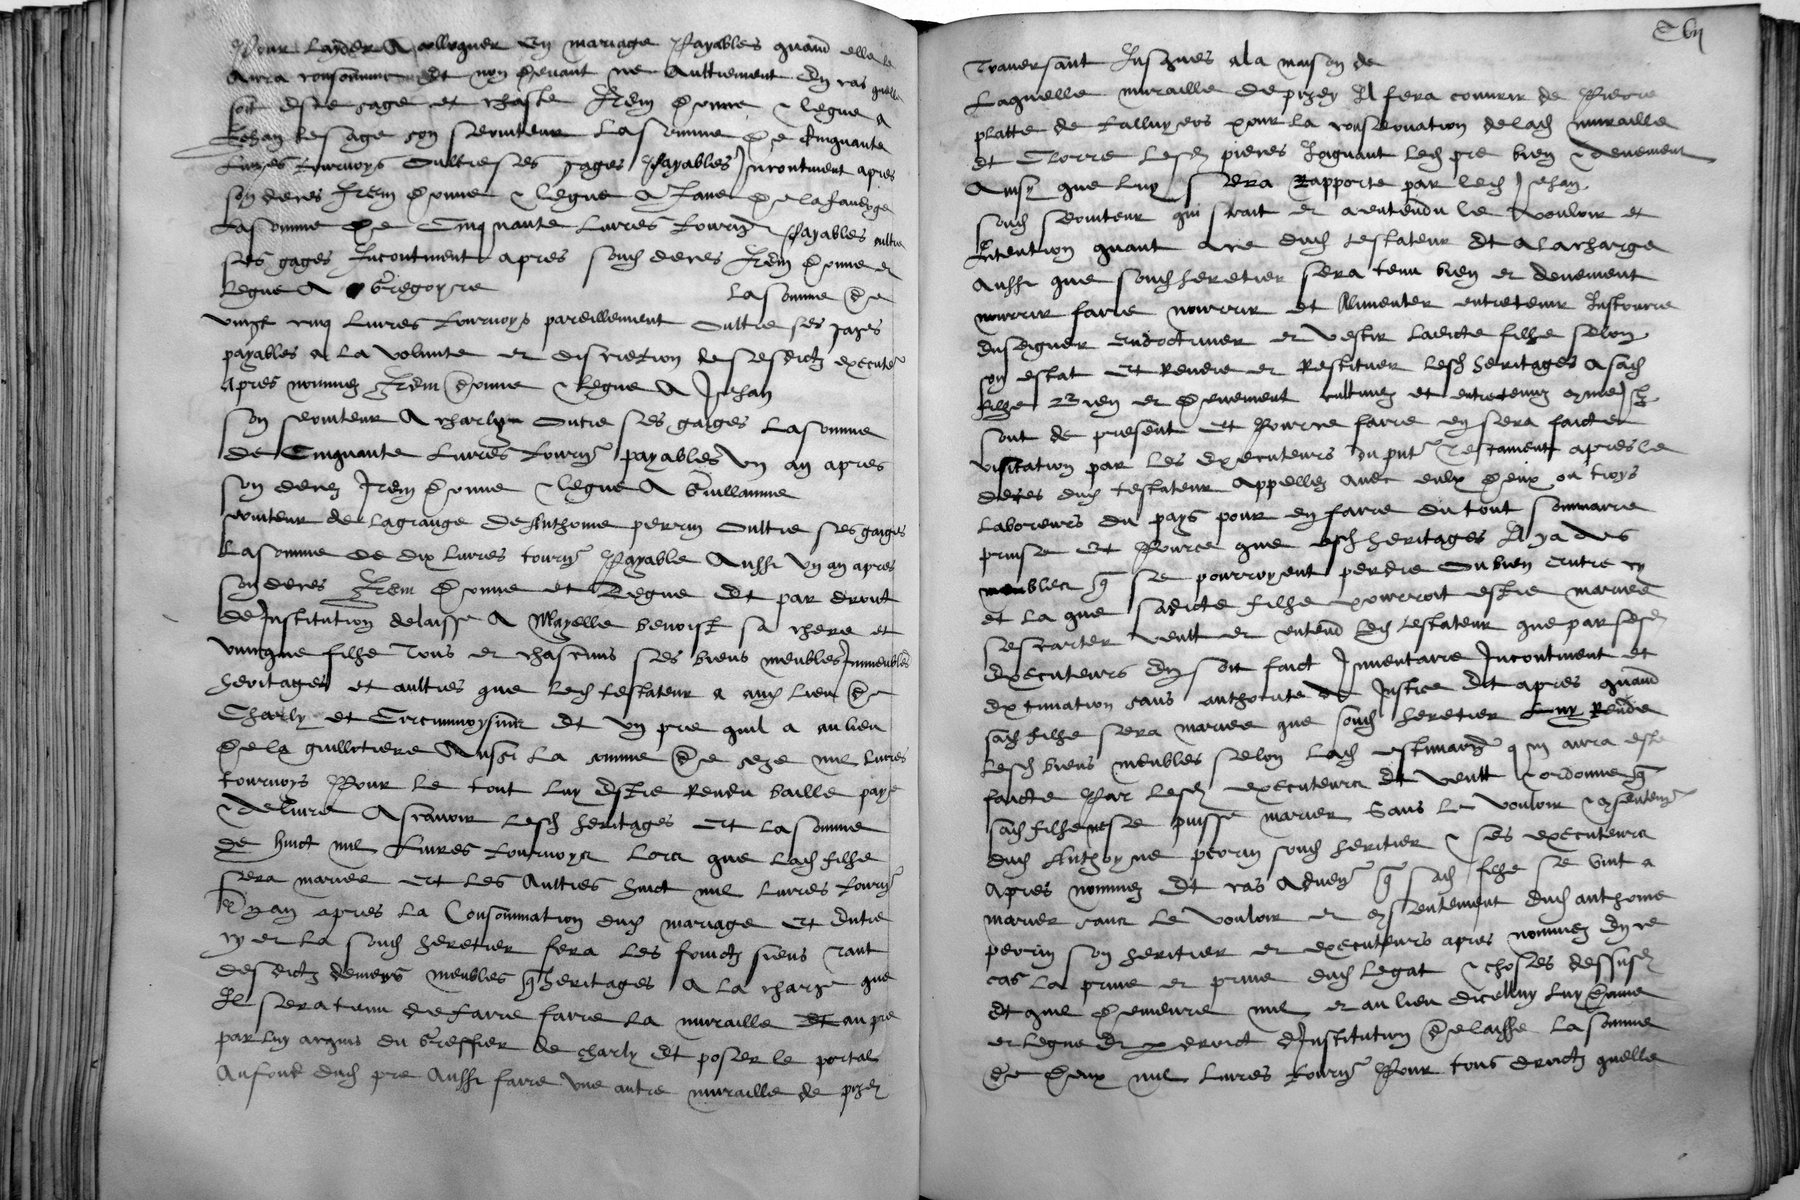 Pour layder A colloquer En mariage Payables quand elle le
Aura consomme Et non devant ne Aultrement En cas quelle
soit estre sage et chaste Item donne & legue A
Jehan lesage son serviteur La somme de Cinquante
Livres tournoys Oultre ses gages Payables Incontinent apres
son deces Item donne & legue A Jane de la
La somme de Cinquante Livres tourns Payables oultre
ses gages Incontinent apres sond deces Item donne et
legue A Gregoyre La somme de
vingt cinq Livres tournoys pareillement Oultre ses gages
payables a la volunte et discretion de sesdictz executrs
apres nommez Item donne & legue A Jehan
son serviteur A charly Outre ses gaiges La somme
de Cinquante Livres tourns payables Un an apres
son deces Item donne & legue A Guillaume
serviteur de Lagrange De Anthoine perrin Oultre ses gaiges
La somme de dix Livres tourns Payable Aussi Un an apres
son deces Item donne et Legue Et par droict
de Institution delaisse A Mayelle benoist sa chere et
unicque filhe Tous et chascuns ses biens meubles Immeubles
heritages et aultres que led testateur a aud lieu de
Charly et Circunvoysins Et Un pre quil a au lieu
de la guillotiere Aussi La somme de seze mil Livres
tournoys Pour le tout luy Estre Rendu baille paye
& delivre Ascavoir Lesd heritages Et La somme
de huict mil Livres tournoys Lors que Lad filhe
sera mariee Et Les Aultres huict mil Livres tourns
Un an apres La Consommation dud mariage Et Entre
cy et La sond heretier fera Les fruictz siens Tant
desdictz deniers meubles que heritages A La charge que
Il sera tenu de faire faire La muraille au pre
par luy acquis du Greffier de charly Et poser le portal
Au fond dud pre Aussi faire une autre muraille de pizey
Traversant Jusques a la maison de
Laquelle muraille de pizey Il fera couvrir de Pierre
platte de pour la conservation de lad muraille
Et Clorre Lesd pieces led pre bien & deuement
Ainsy que luy sera Rapporte par led Jehan
sond serviteur qui scait et a entendu le vouloir et
Intention quant a ce dud testateur Et a la charge
Aussi que sond heretier sera tenu bien et deuement
nourrir faire nourrir et Alimenter entretenir Instruire
Enseigner endoctriner et vestir ladicte filhe selon
son estat Et Rendre et Restituer lesd heritages A sad
filhe Bien et deuement cultivez et entretenuz comme Ilz
sont de present Et Pour ce faire en sera faicte
visitation par les Executeurs du pnt testament apres le
deces dud testateur Appellez Avec eulx deux ou troys
Laboreurs du pays pour en faire du tout sommaire
prinse Et Pource que esd heritages Il y a des
meubles qui se pourroyent perdre Ou bien Entre cy
et la que sadicte filhe pourroit estre mariee
sescarter veult et entend led testateur que par sesd
Executeurs En soit faict Inventaire Incontinent et
Extimation sans authorite de Justice Et apres quand
sad filhe sera mariee que sond heretier Luy Rende
Lesd biens meubles selon Lad estimation qui en aura este
faicte Par Lesd executeurs Et veult & ordonne que
sad filhe ne se puisse marier Sans Le vouloir & consentement
dud Anthoyne perrin sond heritier & ses executeurs
Apres nommez Et cas Advent que sad filhe se vint a
marier sans le vouloir et consentement dud anthoine
perrin son heritier et executeurs apres nommez En ce
cas La prive et prive dud Legat & choses dessusd
Et quil demeure nul et au lieu dicelluy luy donne
et legue Et droict dInstitution delaisse La somme
de deux mil Livres tourns Pour tous droictz quelle